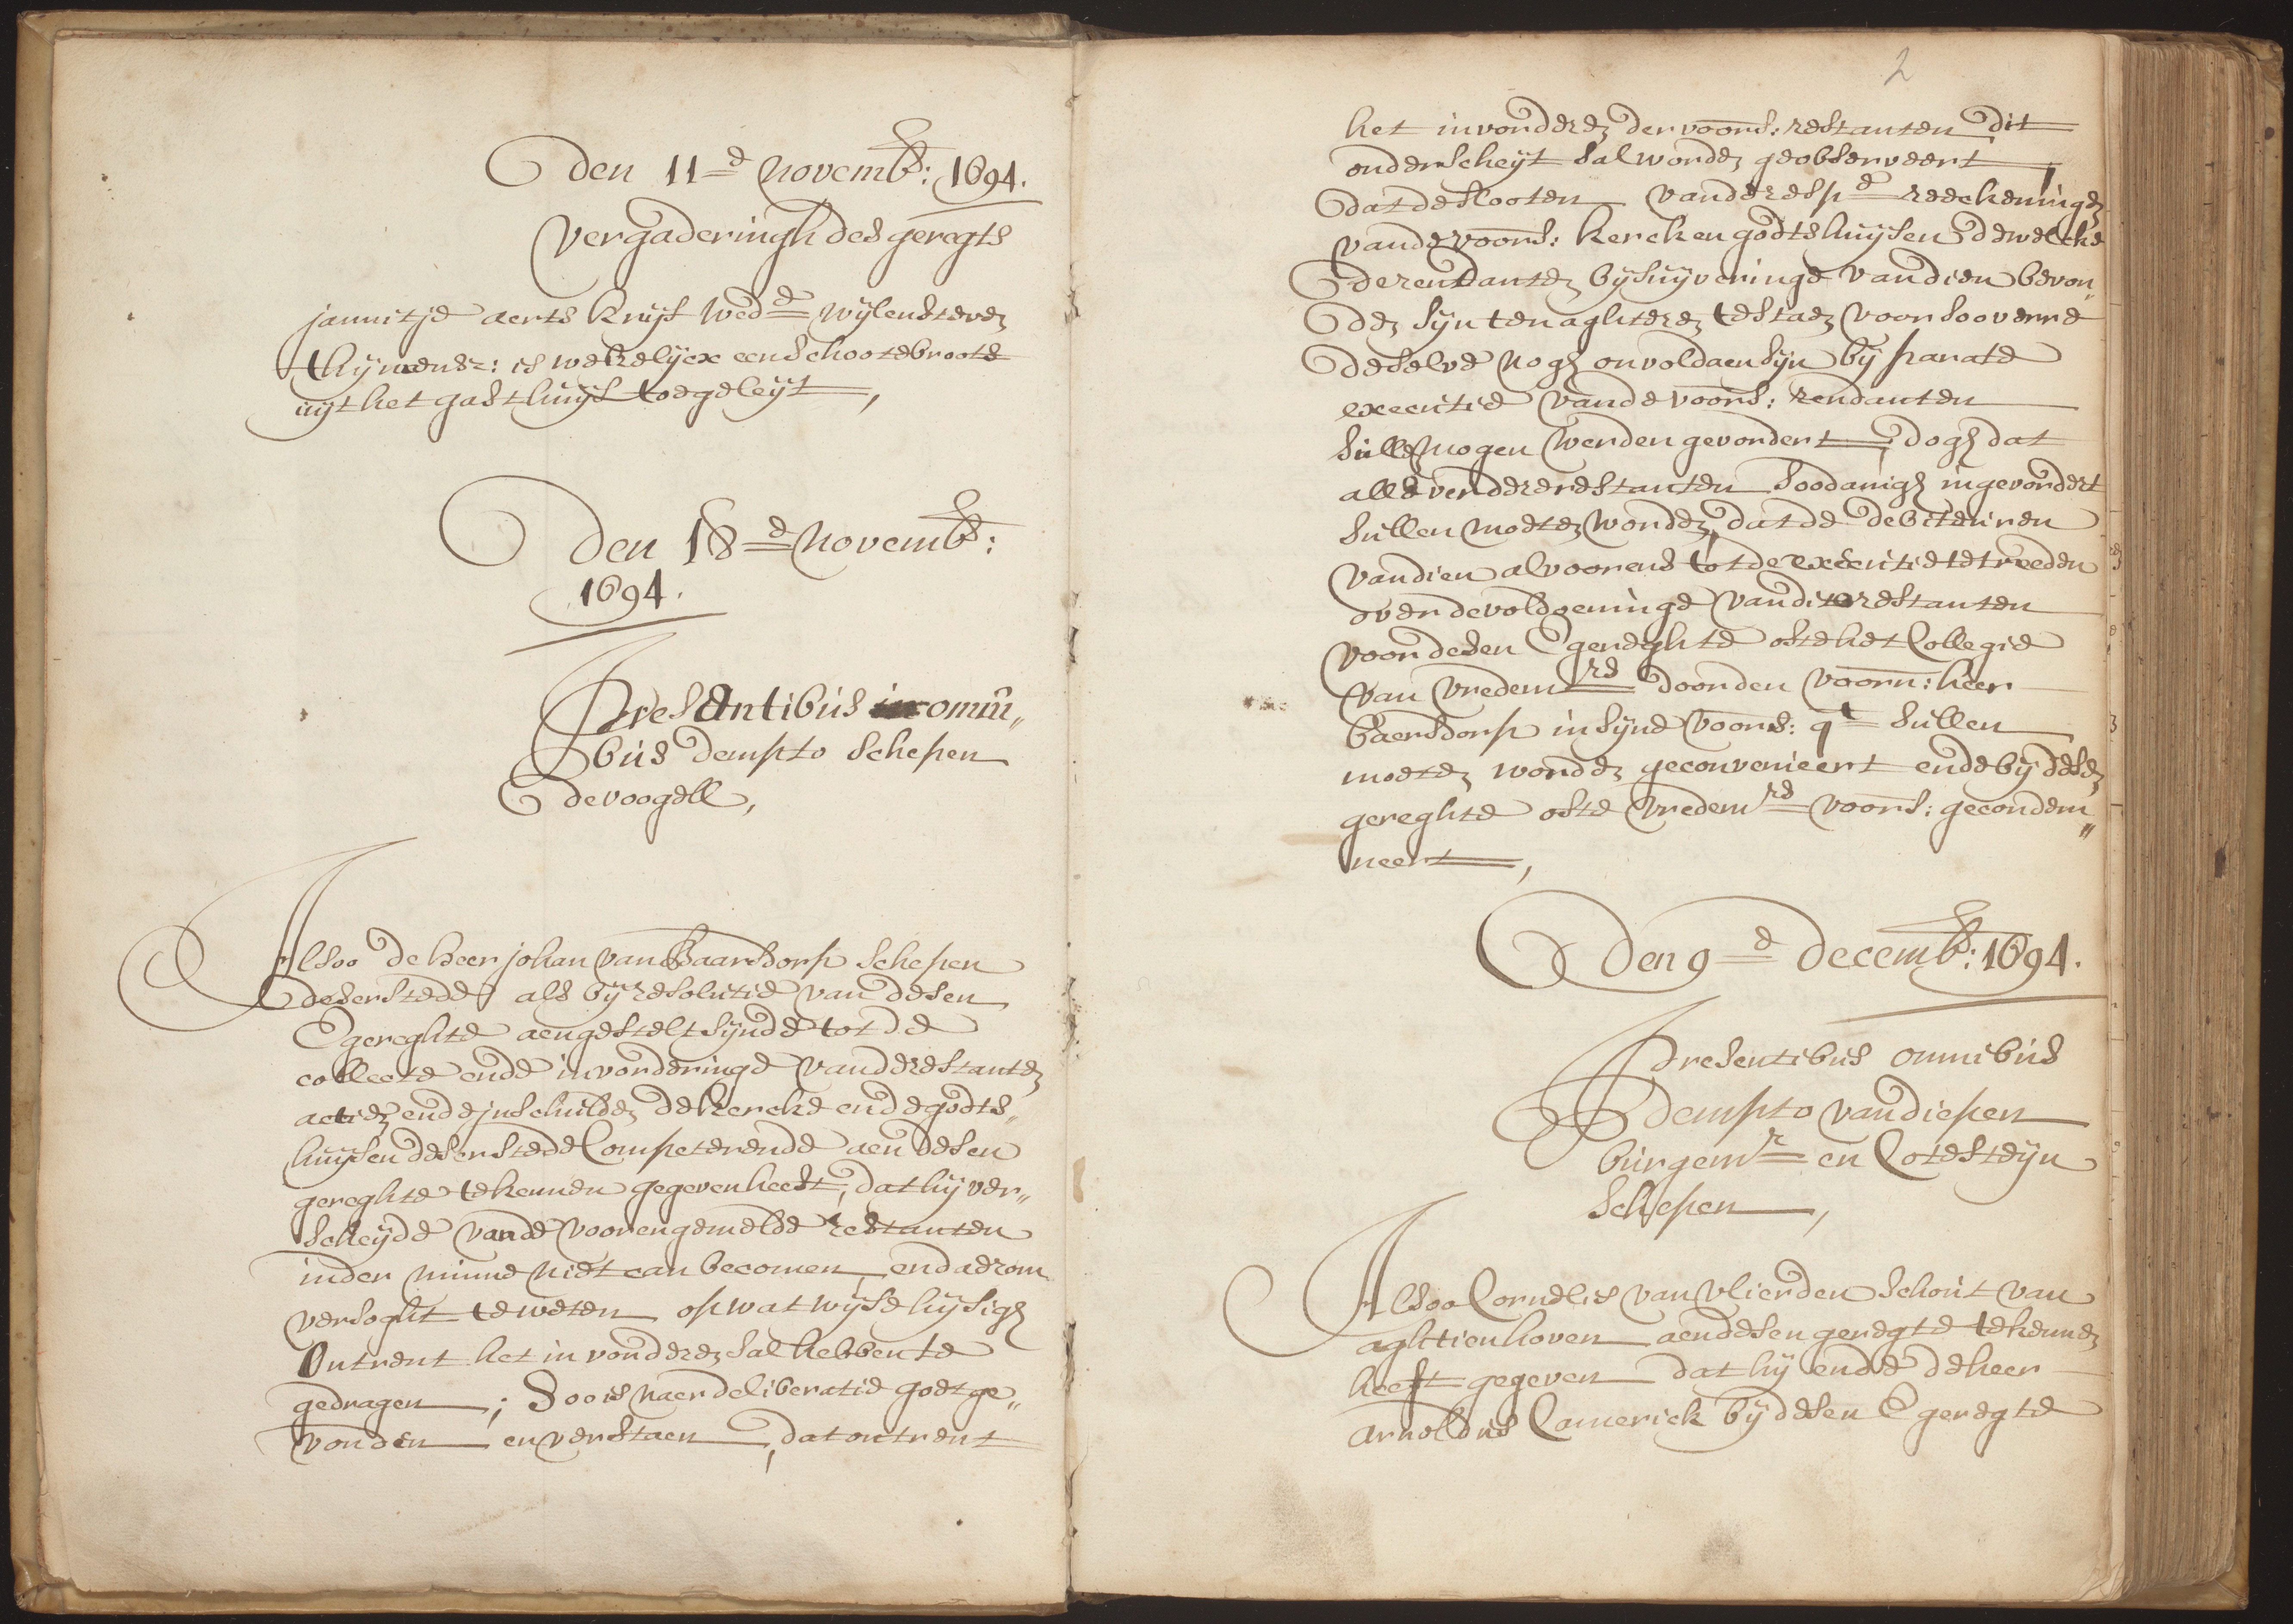 Den 11=d novemb: 1694.
Vergaderingh des geregts
jannitje aerts kruijs wed=e wijlen steven
thijmensz: is wekelijcx een schootebroote
uijt het gasthuijs toegeleijt,
Den 18=d Novemb:
1694.
Presentibus omni„
bus dempto schepen
de voogell,
Alsoo de heer johan van Baarsdorp schepen
deser stede als bij resolutie van desen
E gereghte aengestelt sijnde tot de
collecte ende invorderinge van de restanten
actien ende inschulden de kercke ende godts„
huijsen deser stede Competerende aen desen
gereghte te kennen gegeven heeft, dat hij ver„
scheijde vande voorengemelde restanten
inder minne niet can becomen, en daerom
versoght te weten op wat wijse hij sigh
Ontrent het invorderen sal hebben te
gedragen; Soo is naer deliberatie goetge„
vonden en verstaen, dat ontrent
2
het invorderen der voors: restanten dit
onderscheijt sal worden geobserveert,
dat de slooten vande resp=e reeckeningen
vande voors: kerck en godtshuijsen dewelcke
de rendanten bij suijveringe van dien bevon„
den sijn ten aghteren te staen voor soo verre
deselve nogh onvoldaen sijn bij parate
executie vande voors: rendanten
sullen mogen werden gevordert, dogh dat
alle verdere restanten soodanigh ingevordert
sullen moeten worden, dat de debiteuren
van dien alvoorens tot de executie te treeden
over de voldoeninge van die restanten
voor desen E gereghte ofte het Collegie
van vredem=rs door den voorn: heer
Baersdorp in sijne voors: q=t sullen
moeten worden geconvenieert ende bij desen
gereghte ofte vredem=rs voors: gecondem„
neert,
Den 9=d decemb: 1694.
Presentibus omnibus
dempto van diepen
burgem=r en Cotesteijn
schepen,
Alsoo Cornelis van vlierden schout van
aghttienhoven aen desen geregte te kennen
heeft gegeven dat hij ende de heer
arnoldus Camerick bij desen E geregte